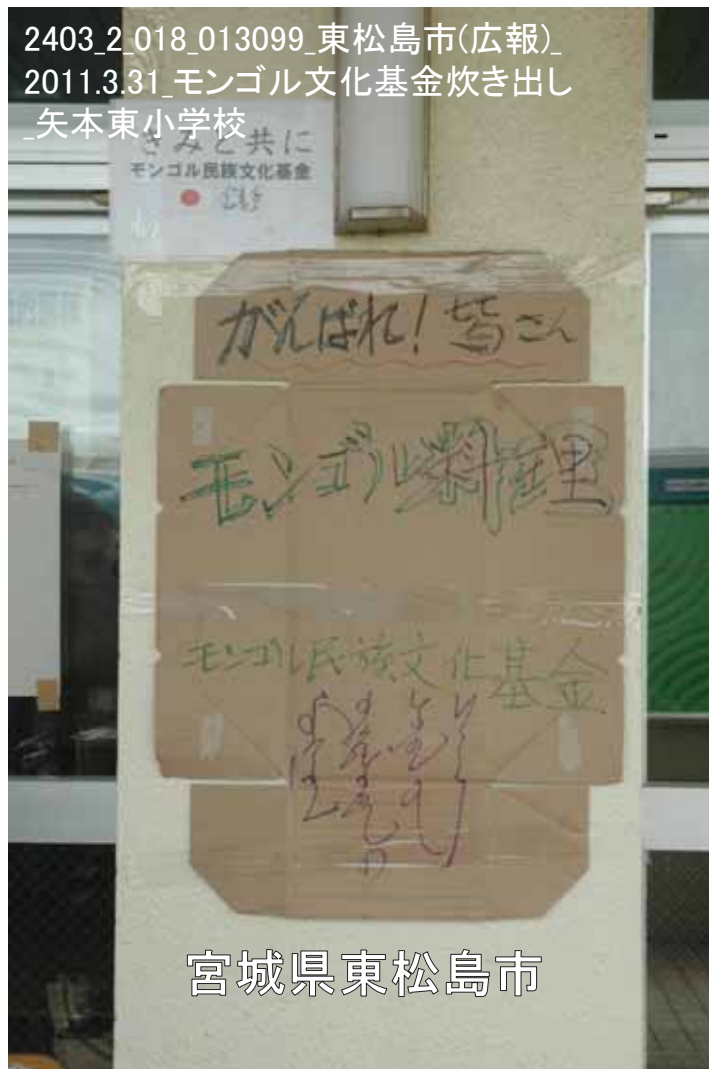 2403_2_018_013099_東松島市(広報)_
2011.3.31_モンゴル文化基金炊き出し
_矢本東小学校
きみと共に
モンゴル民族文化基金
がんばれ！皆さん
モンゴル料理
モンゴル民族文化基金
宮城県東松島市